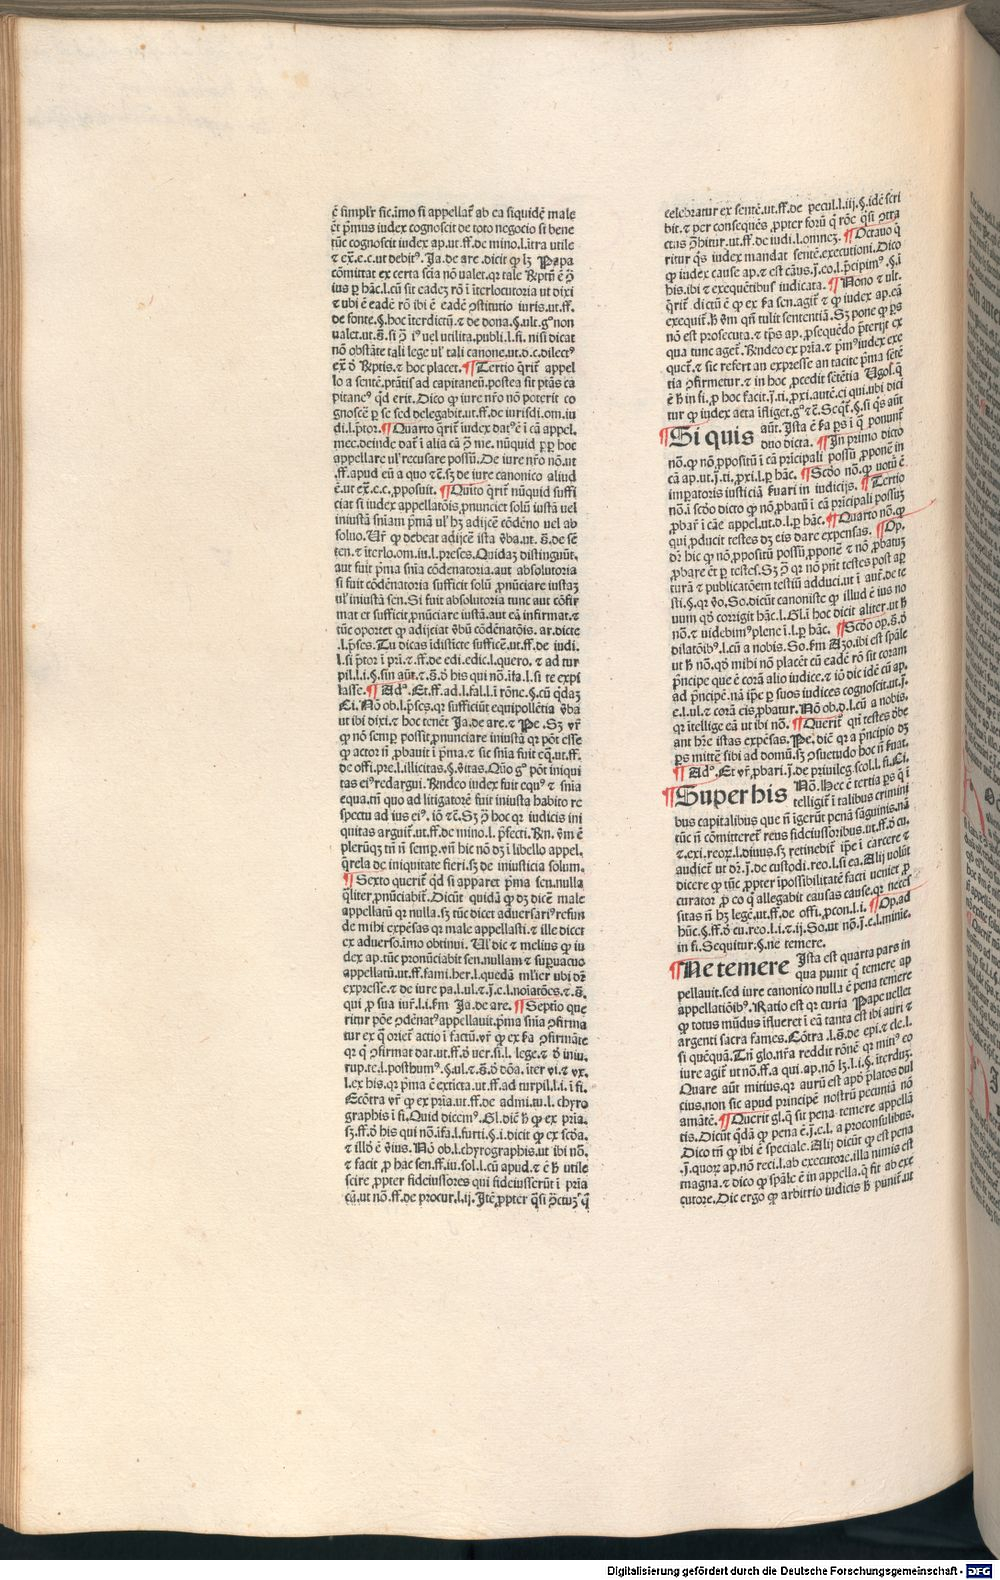 ē simplr̄ sic.īmo si appellat᷑ ab ea siquidē male
ēt pͥmus iudex cognoscit de toto negocio si bene
tūc cognoscit iudex ap.ut ff.de mino.l.ītra utile
⁊ ex̄.e.c.ut debitꝰ. Ja.de are .dicit ꝙ lꝫ Papa
cōmittat ex certa scīa nō ualet.qꝛ tale
ius ꝑ hāc.l.cū sit eadeꝫ rō ī īterlocutoria ut dixi
⁊ ubi ē eadē rō ibi ē eadē ꝯstitutio iuris.ut.ff.
de fonte.§.hoc īterdictū.⁊ de dona.§.ult.gͦ non
ualet.ut.s̄.si ꝯͣ iꝰ vel utilita.publi.l.fi. nisi dicat
nō obstāte tali lege ul' tali canone.ut.d.c.dilectꝰ
⁊ hoc placet.¶Tertio q̄rit᷑ appel
lo a sentē.ptātis ad capitaneū.postea fit ptās ca
pitaneꝰ qͥd erit. Dico ꝙ iure nr̄o nō poterit co
gnoscē ꝑ se sed delegabit.ut.ff.de iurisdi.om.iu
di.l.p̄tor.¶Quarto q̄rit᷑ iudex datꝰ ē ī cā appel.
mec.deinde dat᷑ ī alia cā ꝯͣ me. nūquid ꝓꝑ hoc
appellare ul' recusare possū. De iure nr̄o nō.ut
.ff.apud eū a quo ⁊c̄.sꝫ de iure canonico aliud
ē.ut ex̄.e.c.ꝓposuit. ¶Quīto q̄rit᷑ nūquid suffi
ciat si iudex appellatōis ꝓnunciet solū iusta vel
iniustā sn̄iam pͥmā ul' hꝫ adijcē cōdēno uel ab
soluo. Vr̄ ꝙ debeat adijcē ista v̄ba.ut. s̄.de sē
ten.⁊ īterlo.om.iu.l.preses. Quidaꝫ distinguūt.
aut fuit pͥma sn̄ia cōdenatoria.aut absolutoria
si fuit cōdēnatoria sufficit solū ꝓnūciare iustaꝫ
ul' iniustā sen. Si fuit absolutoria tunc aut cōfir
mat et sufficit ꝓnūciare iustā.aut eā infirmat.⁊
tūc oportet ꝙ adijciat v̄bū cōdēnatōis. ar.dicte
.l.p̄ses. Tu dicas īdistīcte sufficē.ut.ff.de iudi.
l.si p̄tor ī pri.⁊.ff.de edi.edic.l.quero. ⁊ ad tur
pil.l.i.§.fin aūt.⁊.s̄.d̄ his qui nō.īfa.l.si te expi
lasse.¶Adͣ. Et.ff.ad.l.fal.l.ī rōne.§.cū qͥdaꝫ
Ci. Nō ob.l.p̄ses.qꝛ sufficiūt equipollētia v̄ba
ut ibi dixi.⁊ hoc tenēt Ja.de are.⁊ Pe. Sꝫ vr̄
ꝙ nō semꝑ possit ꝓnunciare iniustā qꝛ pōt esse
ꝙ actor nī ꝓbauit ī pͥma.⁊ sic sn̄ia fuit eq̄.ut.ff.
de offi.pre.l.illicitas.§.v̄itas. Quō gͦ pōt iniqui
tas eiꝰ redargui. Rn̄deo iudex fuit equꝰ ⁊ sn̄ia
equa.tn̄ quo ad litigatorē fuit iniusta habito re
spectu ad ius eiꝰ. iō ⁊c̄. Sꝫ ꝯͣ hoc qꝛ iudicis ini
quitas arguit᷑.ut.ff.de mino.l. p̄fecti. Rn̄. v̄m ē
plerūqꝫ tn̄ n̄ semꝑ.vn̄ hic nō dꝫ ī libello appel.
q̄rela de iniquitate fieri.sꝫ de iniusticia solum.
¶Sexto querit᷑ qͥd si apparet pͥma sen.nulla
qͣliter ꝓnūciabit᷑. Dicūt quidā ꝙ dꝫ dicē male
appellatū qꝛ nulla.sꝫ tūc dicet aduersariꝰ refun
de mihi expēsas qꝛ male appellasti.⁊ ille dicet
ex aduerso.īmo obtinui. Ul' dic ⁊ melius ꝙ iu
dex ap.tūc pronūciabit sen.nullam ⁊ suꝑuacuo
appellatū.ut.ff.fami.her.l.quedā ml'ier ubi dꝛ
expresse.⁊ de iure pa.l.ul.⁊.j̄.e.l.noīatōes.⁊.s̄.
qui ꝓ sua iur̄.l.i.fm Ja.de are. ¶Septīo que
ritur pōe ꝯdēnatꝰ appellauit.pͥma sn̄ia ꝯfirma
tur ex q̄ oriet᷑ actio ī factū.vr̄ ꝙ ex ẜa ꝯfirmāte
qꝛ qͥ ꝯfirmat dat.ut.ff.d̄ uer.fi.l. lege.⁊ d̄ iniu.
rup.te.l.posthumꝰ.§.ul.⁊.s̄.d̄ dōa. īter vi.⁊ vx.
l.ex his.qꝛ pͥma ē extīcta.ut.ff.ad turpil.l.i.ī fi.
Ecōtra vr̄ ꝙ ex pͥma.ut.ff.de admi.tu.l. chyro
graphis ī fi. Quid dicemꝰ. Gl.diē h̄ ꝙ ex pͥma.
sꝫ.ff.d̄ his qui nō.īfa.l.furti.§.i.dicit ꝙ ex scd̄a.
⁊ illō ē v̄ius. Nō ob.l.chyrographis.ut ibi nō.
⁊ facit ꝓ hac sen.ff.iu.sol.l.cū apud.⁊ ē h̄ utile
scire ꝓpter fideiussores qui fideiusserūt ī pͥma
cā.ut nō.ff.de procur.l.ij. Itē ꝓpter qͣsi ꝯctuꝫ qͥ
celebratur ex sentē.ut.ff.de pecul.l.iij.§.idē scri
bit.⁊ per consequēs ꝓpter forū
ut.ff.de iudi.l.omneꝫ. ¶Octauo q̄
ritur qͥs iudex mandat sentē.executioni. Dico
ꝙ iudex cause ap.
his.ibi ⁊ exequētibus iudicata. ¶Nono ⁊ ult.
q̄rit᷑ dictū ē ꝙ ex ẜa sen.agit᷑ ⁊ ꝙ iudex ap.eā
exequit᷑. h̄ v̄m qn̄ tulit sententiā. Sꝫ pone ꝙ ꝑs
nō est prosecuta.⁊ tp̄s ap.ꝓsequēdo p̄terijt ex
qua tunc aget᷑. Rn̄deo ex pͥma.⁊ pͥmꝰ iudex exe
quet᷑.⁊ sic refert an expresse an tacite pͥma sētē
tia ꝯfirmetur.⁊ in hoc ꝓcedit sētētia Ugol.qͥ
ē h̄ in fi.
tur ꝙ iudex acta īfliget.gͦ ⁊c̄. Seqͥt᷑.§.si qͥs aūt
¶Si quis aūt. Ista ē ẜa ꝑs ī qͣ ponunt᷑
duo dicta. ¶In primo dicto
nō.ꝙ nō ꝓpositū ī cā prīcipali possū ꝓponē in
cā ap.ut.j̄.ti.ꝓxi.l.ꝑ hāc. ¶Scd̄o nō.ꝙ uotū ē
impatoris iusticiā ẜuari in iudicijs. ¶Tertio
nō.ī scd̄o dicto ꝙ nō ꝓbatū ī cā prīcipali possuꝫ
ꝓbar᷑ ī cāe appel.ut.d.l.ꝑ hāc. ¶Quarto nō.ꝙ
qui ꝓducit testes dꝫ eis dare expensas. ¶Op.
dꝛ hic ꝙ nō ꝓpositū possū ꝓponē ⁊ nō ꝓbatuꝫ
ꝓbare ēt ꝑ testes. Sꝫ ꝯͣ qꝛ nō pn̄t testes post aꝑ
turā ⁊ publicatōem testiū adduci.ut ī aut̄.de te
sti.§.qꝛ v̄o. So.dicūt canoniste ꝙ illud ē ius no
uum qd̄ corrigit hāc.l. Gl.ī hoc dicit aliter.ut h̄
nō.⁊ uidebimꝰ plene ī.l.ꝑ hāc. ¶Scd̄o op.s̄.d̄
dilatōibꝰ.l.cū a nobis. So.fm Azo.ibi est spāle
ut h̄ nō.qd̄ mihi nō placēt cū eadē rō sit coram
p̄ncipe que ē corā alio iudice.⁊ iō dic idē cū ap.
ad p̄ncipē.nā ip̄e ꝑ suos iudices cognoscit.ut.j̄.
e.l.ul.⁊ corā eis ꝓbatur. Nō ob.d.l.cū a nobis.
qꝛ ītellige eā ut ibi nō. ¶Querit᷑ qn̄ testes dēbe
ant hr̄e istas expēsas. Pe. diē qꝛ a p̄ncipio dꝫ
ꝑs mittē sibi ad domū.sꝫ ꝯsuetudo hoc n̄ ẜuat.
¶Adͣ. Et vr̄ ꝓbari.j̄.de priuileg.scol.l. fi. Ci.
¶Super his Nō. Hec ē tertia ꝑs qͥ ī
telligit᷑ ī talibus crimini
bus capitalibus que n̄ īgerūt penā sāguinis.nā
tūc n̄ cōmitteret᷑ reus fideiussoribus.ut.ff.d̄ cu.
⁊.exi.reoꝝ.l.diuus.sꝫ retinebit᷑ ip̄e ī carcere ⁊
audiet᷑ ut dꝛ.j̄.de custodi.reo.l.si ea. Alij uolūt
dicere ꝙ tūc ꝓpter īpossibilitatē facti ueniet ꝓ
curator ꝓ eo qͥ allegabit causas cause.qꝛ neces
sitas n̄ hꝫ legē.ut.ff.de offi.ꝓcon.l.i. ¶Op.ad
hūc.§.ff.d̄ cu.reo.l.i.⁊.ij. So.ut nō.j̄.e.l.minie.
in fi. Sequitur.§.ne temere.
¶Ne temere Ista est quarta pars in
qua punit qͥ temere ap
pellauit.sed iure canonico nulla ē pena temere
appellatiōibꝰ. Ratio est qꝛ curia Pape uellet
ꝙ totus mūdus īflueret ī eā tanta est ibi auri ⁊
argenti sacra fames. Cōtra .l.s̄.de epi.⁊ cle.l.
si quēquā. Tn̄ glo.nr̄a reddit rōnē qꝛ mitiꝰ eo
iure agit᷑ ut nō.ff.a qui.ap.nō lꝫ.l.i.§.īterduꝫ.
Quare aūt mitius.qꝛ aurū est apd̄ p̄latos dul
cius.non sic apud principē nostrū pecuniā nō
amātē. ¶Querit gl.qͣ sit pena temere appellā
tis. Dicūt qͥdā ꝙ pena ē.j̄.e.l. a proconsulibus.
Dico tn̄ ꝙ ibi ē speciale. Alij dicūt ꝙ est pena
.j̄.quoꝝ ap.nō reci.l.ab executore.illa nimis est
magna.⁊ dico ꝙ spāle ē in appella.qͥ fit ab exe
cutore. Dic ergo ꝙ arbitrio iudicis h̄ punit᷑.ut
Digitalisierung gefördert durch die Deutsche Forschungsgemeinschaft - DFG